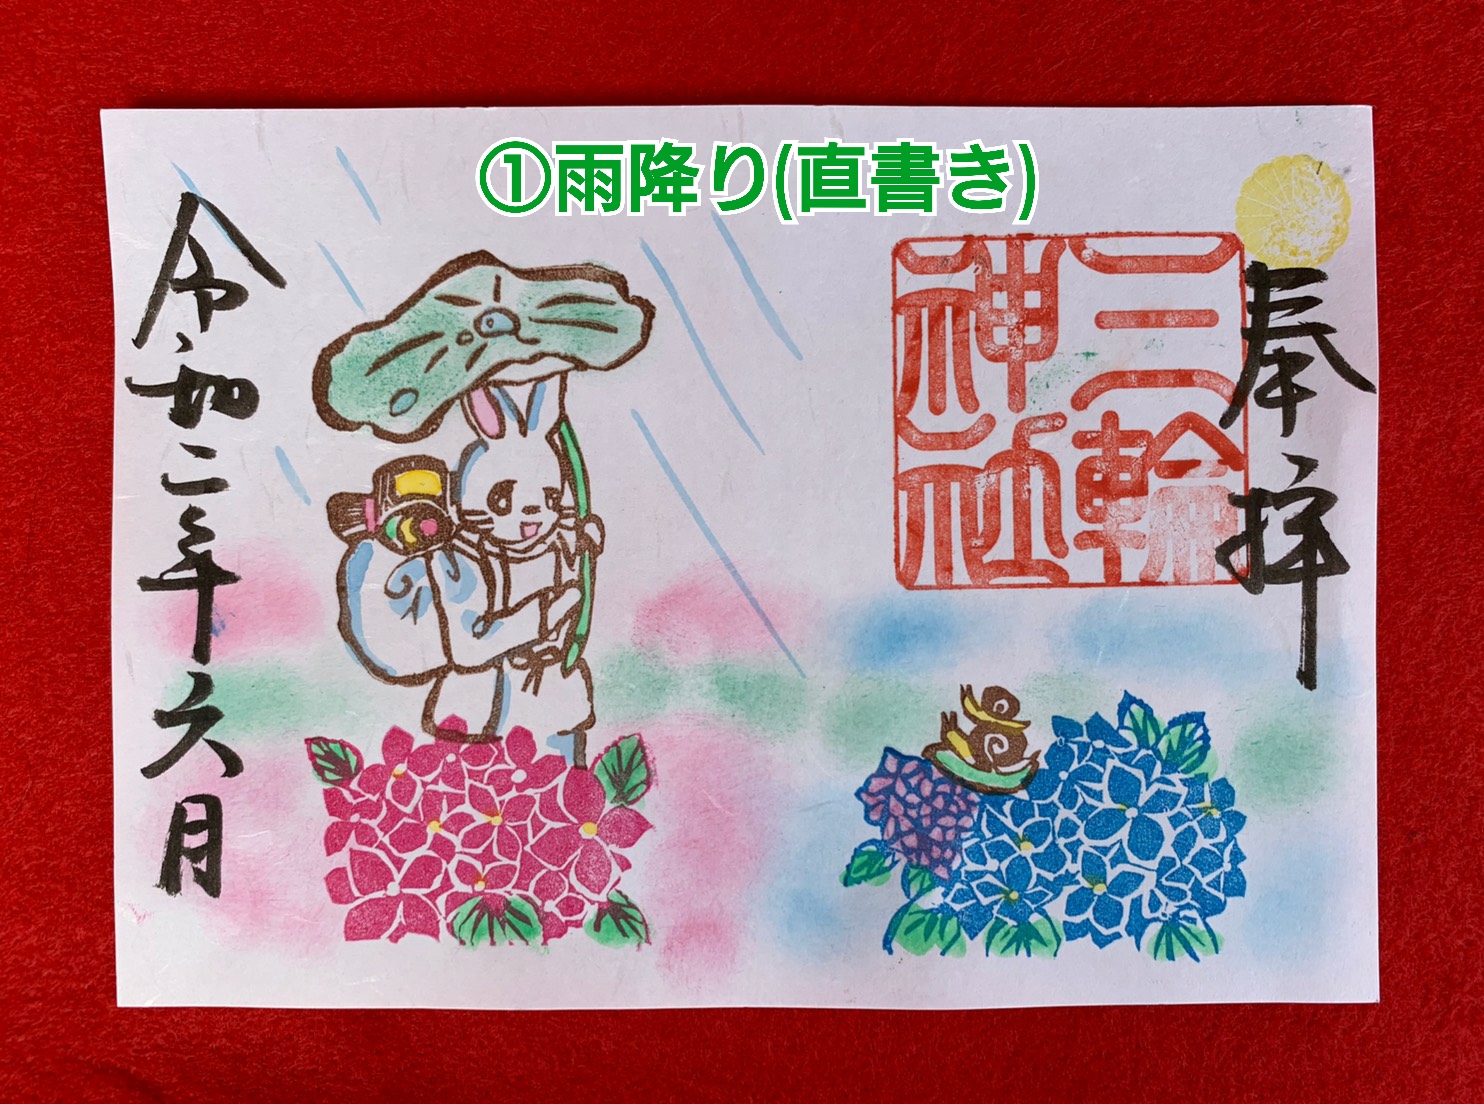 ①雨降り(直書き)
奉拝
三輪
神社
令和二年六月